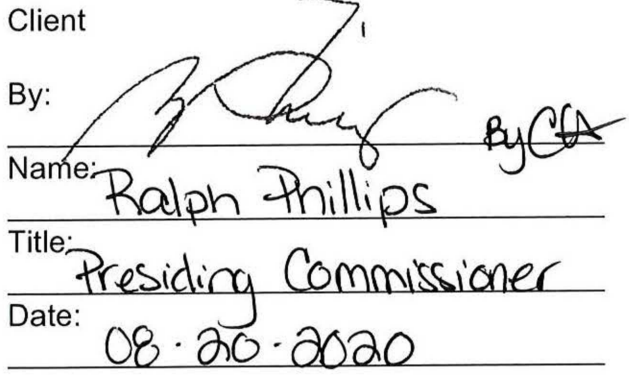 Client
By:
By
Name: Ralph Phillips
Title: Presiding Commissioner
Date: 08-20-2020